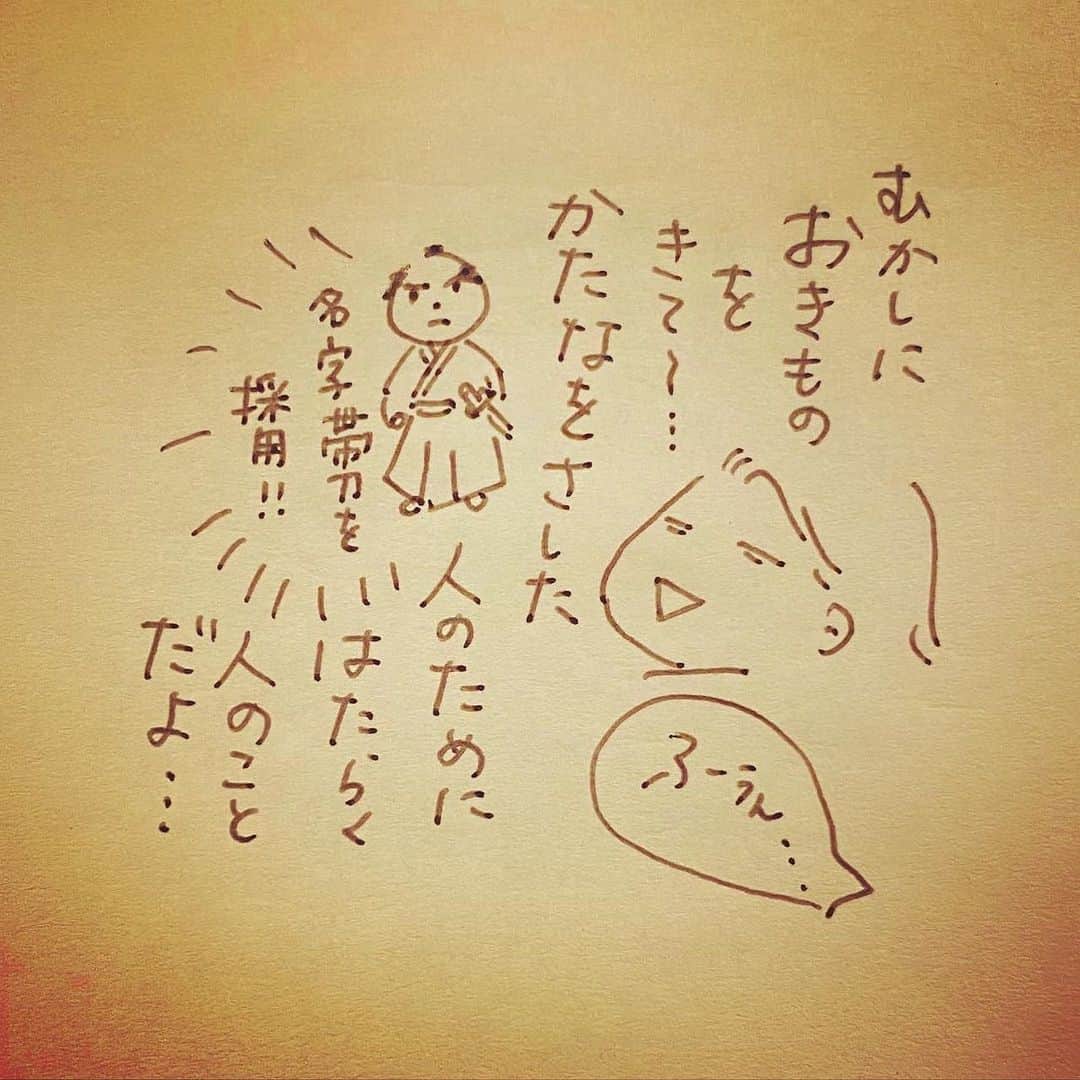 むかしに
おきもの
を
きて〜…
かたなをさした
人のために
はたらく
人のこと
だよ…
名字帯刀を
採用!!
ふーうん…